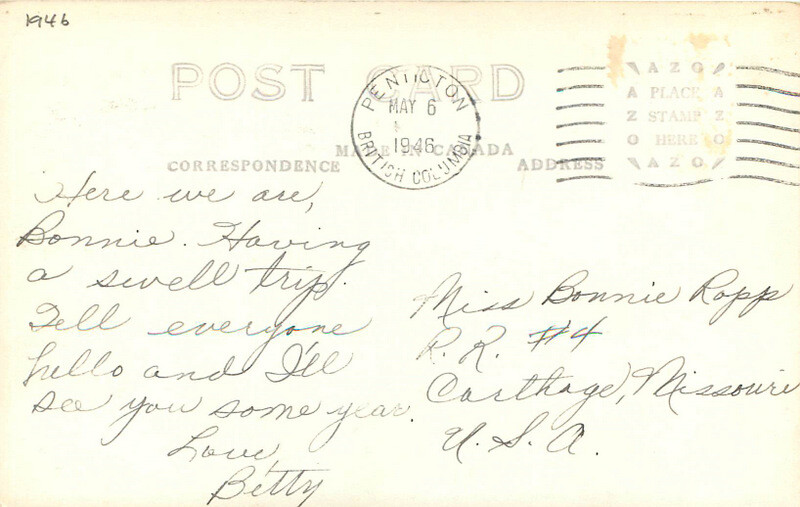 1946
POST CARD
PENTICTON
MAY 6
1946
BRITISH COLUMBIA
AZO
A PLACE A
Z STAMP Z
O HERE O
AZO
MADE IN CANADA
CORRESPONDENCE
ADDRESS
Here we are,
Bonnie. Having
a swell trip.
Tell everyone
hello and I'll
see you some year.
Love,
Betty
Miss Bonnie Rapp
R. R. #4
Carthage, Missouri
U. S. A.